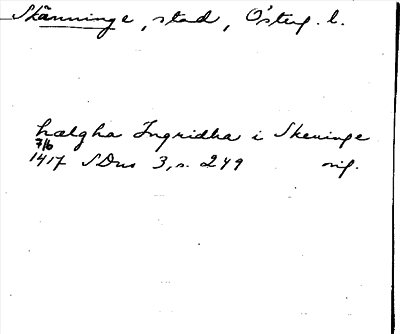 Skänninge, stad, Österg. l.
hælgha Ingridha i Skeninge
7/6
1417 SDns 3, s. 249 orig.